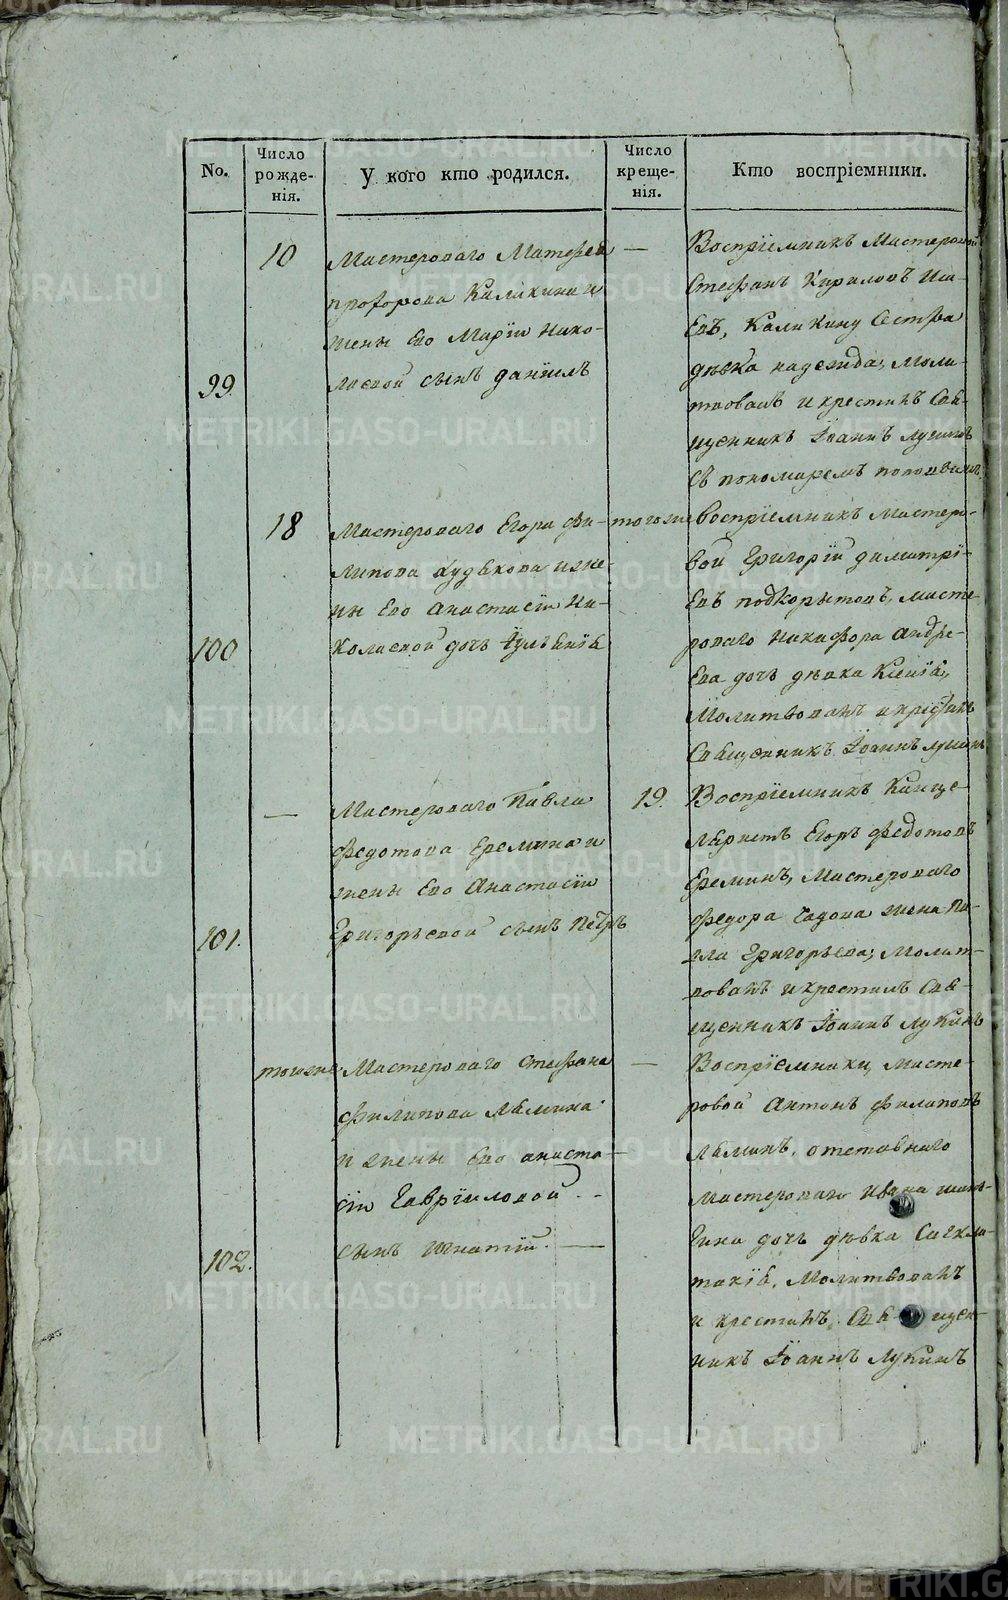 No.
Число рожде-нія.
У кого кто родился.
Число креще-нія.
Кто воспріемники.
99.
10
Мастероваго Матфея
прохорова Калики на и
жены Его Маріи Нико-
лаевой сынъ даніилъ
—
Воспріемникъ Мастеровой
Стефанъ Кириловъ Иса-
Евъ, Каликину Сестра
дѣвка надежда; моли-
твовалъ и крестилъ Свя-
щенникъ Іоаннъ Лукинъ
съ пономаремъ
100
18
Мастероваго Егора фи-
липова Худякова и же-
ны Его Анастасіи Ни-
колаевой дочь Іуліанія
тогоже
воспріемникъ мастеро-
вой Григорій димитрі-
Евъ подкорытовъ, масте-
роваго Никифора андре-
Ева дочь дѣвка Ксенія,
Молитвовалъ и крестилъ
Священникъ Іоаннъ лукинъ
101.
—
Мастероваго Павла
федотова Еремина и
жены Его Анастасіи
Григорьевой сынъ Петръ
19.
Воспріемникъ Канце-
ляристъ Егоръ федотовъ
Ереминъ, Мастероваго
федора жена
Григорьева; Молит-
вовалъ и крестилъ Свя-
щенникъ Іоаннъ Лукинъ
102.
тогоже
Мастероваго Стефана
филипова Лямина
и жены Его анаста-
сіи Гавріиловой
сынъ Игнатій. —
—
Воспріемники, масте-
ровой Антонъ филиповъ
Ляминъ, отставнаго
мастероваго Ивана
гина дочь дѣвка
Молитвовалъ
и крестилъ Свя-щен-
никъ Іоаннъ Лукинъ
METRIKI.GASO-URAL.RU